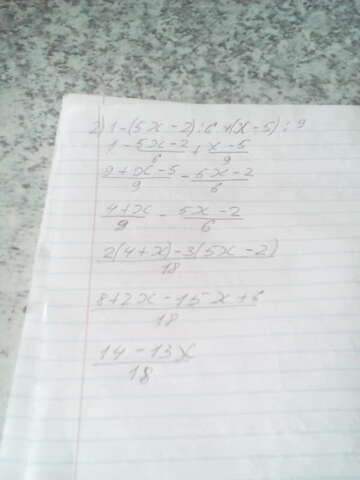 2) 1-(5x-2):6+(x-5):9
1 - 5x-2/6 + x-5/9
9+x-5/9 - 5x-2/6
4+x/9 - 5x-2/6
2(4+x)-3(5x-2)/18
8+2x-15x+6/18
14-13x/18